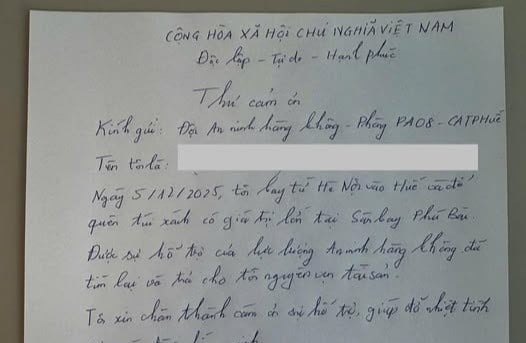 CỘNG HÒA XÃ HỘI CHỦ NGHĨA VIỆT NAM
Độc lập - Tự do - Hạnh phúc
Thư cảm ơn
Kính gửi: Đội An ninh hàng không - Phòng PA08 - CATP Huế
Tên tôi là:
Ngày 5/12/2025, tôi bay từ Hà Nội vào Huế và để
quên túi xách có giá trị lớn tại Sân bay Phú Bài.
Được sự hỗ trợ của lực lượng An ninh hàng không đã
tìm lại và trả cho tôi nguyên vẹn tài sản.
Tôi xin chân thành cảm ơn sự hỗ trợ, giúp đỡ nhiệt tình